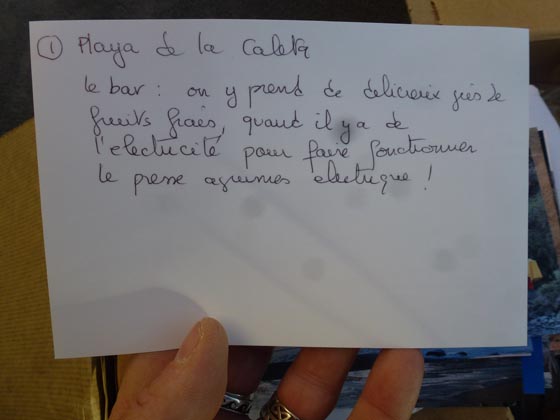 ① Playa de la Caleta
le bar : on y prend de delicieux jus de
fruits frais, quand il y a de
l'electricité pour faire fonctionner
le presse agrumes electrique !